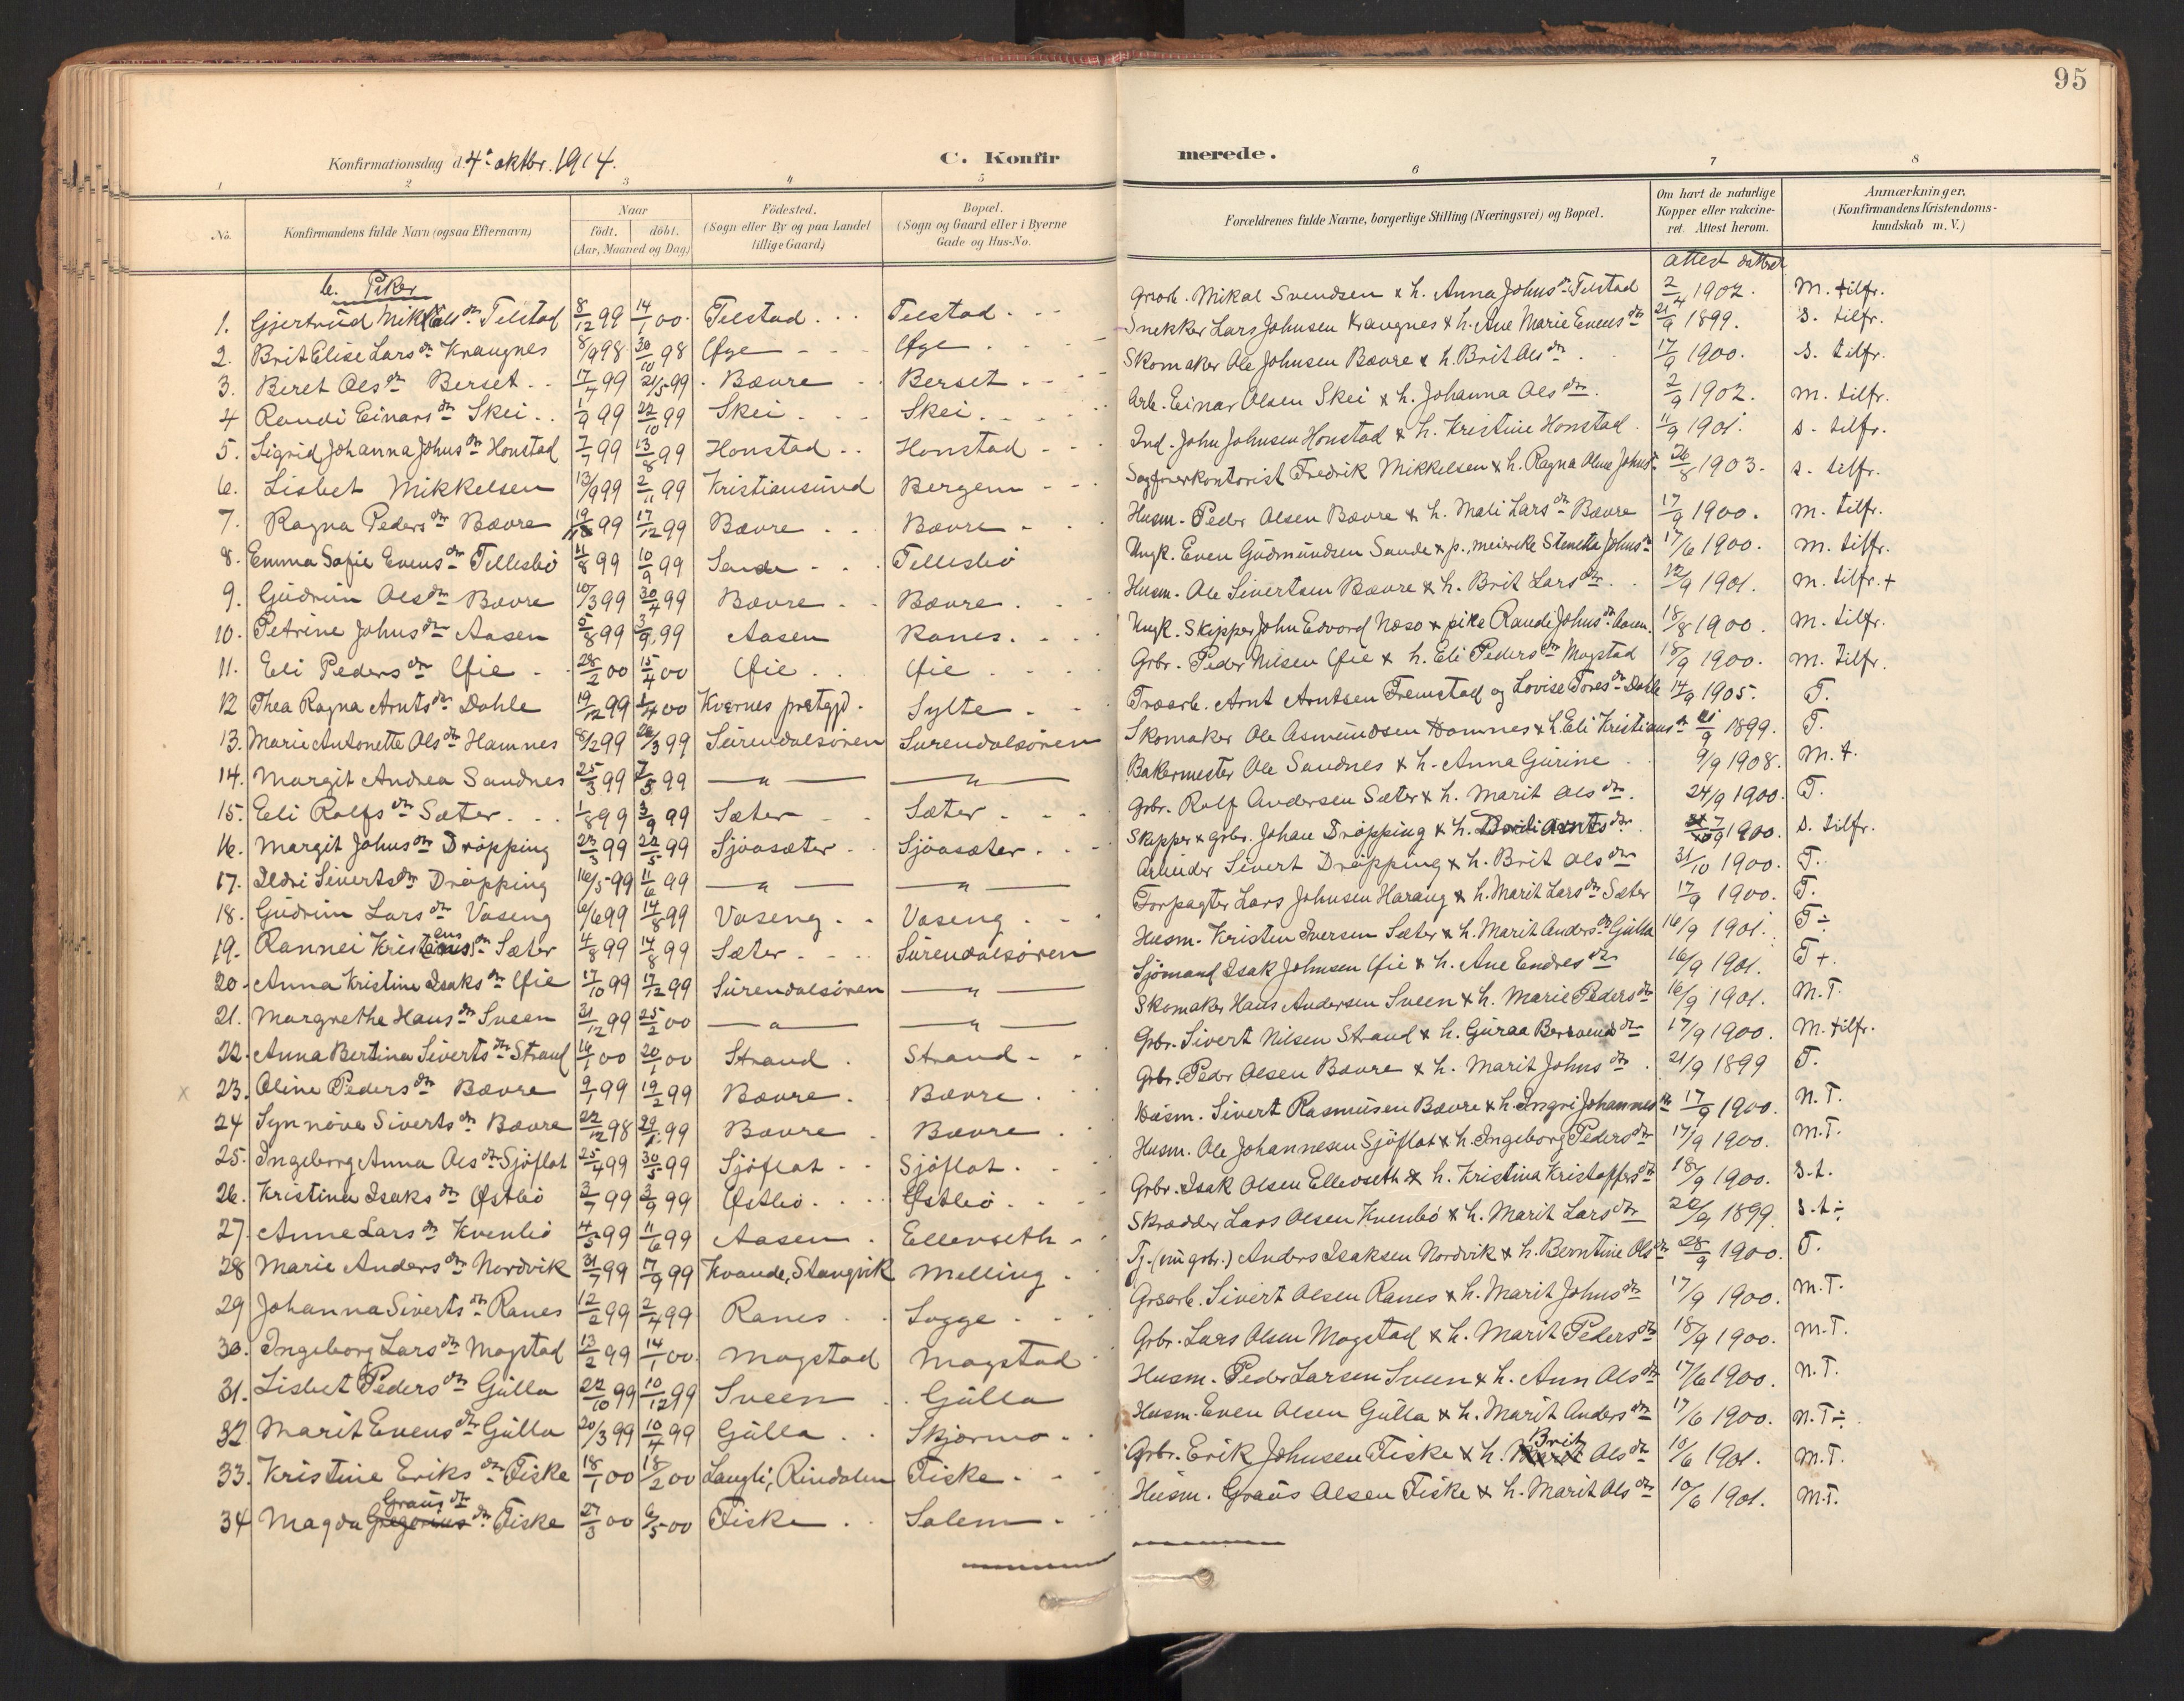 95
Konfirmationsdag d. 4de oktbr. 1914.
C. Konfirmerede.
1 2 3 4 5 6 7 8
No.
Konfirmandens fulde Navn (ogsaa Efternavn)
Naar
födt. döbt.
(Aar, Maaned og Dag)
Födested.
(Sogn eller By og paa Landet
lillige Gaard)
Bopæl.
(Sogn og Gaard eller i Byerne
Gade og Hus-No.
Forældrenes fulde Navne, borgerlige Stilling (Næringsvei) og Bopæl.
Om havt de naturlige
Kopper eller vakcine-
ret. Attest herom.
Anmærkninger,
(Konfirmandens Kristendoms-
kundskab m. V.)
b. Piker
attest dateret
1. Gjertrud Mikals dtr Telstad 8/12 99 14/1 00 Telstad Telstad Grarb. Mikal Svendsen & h. Anna Johns dtr Telstad 2/4 1902. M. tilfr.
2. Brit Elise Lars dtr Krangnes 8/9 98 30/10 98 Øye Øye Snekker Lars Johnsen Krangnes & h. Ane Marie Evens dtr 21/9 1899. S. tilfr.
3. Beret Ols dtr Berset 17/4 99 21/5 99 Bævre Berset Skomaker Ole Johnsen Bævre & h. Brit Ols dtr 17/9 1900. S. tilfr.
4 Randi Einars dtr Skei 1/9 99 22/10 99 Skei Skei Arb. Einar Olsen Skei & h. Johanna Ols dtr 2/9 1902. M. tilfr.
5. Sigrid Johanna Johns dtr Honstad 7/7 99 13/8 99 Honstad Honstad Ind. John Johnsen Honstad & h. Kristine Honstad 11/9 1901. S. tilfr.
6. Lisbet Mikkelsen 13/9 99 2/11 99 Kristiansund Bergem Sagförerkontorist Fredrik Mikkelsen & h. Ragna Johns. 26/8 1903. S. tilfr.
7. Ragna Peders dtr Bævre 19/ 99 17/12 99 Bævre Bævre Husm. Peder Olsen Bævre & h. Mali Lars dtr Bævre 17/9 1900. M. tilfr.
8. Emma Sofie Evens dtr Tellesbö 11/8 99 10/9 99 Sande Tellesbö Ungk. Even Gudmundsen Sande & p., meierske Johns dtr 17/6 1900. M. tilfr.
9. Gudrun Ols dtr Bævre 10/3 99 30/4 99 Bævre Bævre Husm. Ole Sivertsen Bævre & h. Brit Lars dtr 12/9 1901. M. tilfr. +
10. Petrine Johns dtr Aasen 5/8 99 3/9 99 Aasen Ranes Ungk. Skipper John Edvard Næsö & pike Randi Johns dtr Aasen. 18/8 1900. M. tilfr.
11. Eli Peders dtr Øie 28/2 00 15/4 00 Øie Øie Grbr. Peder Nilsen Øie & h. Eli Peders dtr Mogstad 18/9 1900. M. tilfr.
12 Thea Ragna Arnts dtr Dahle 19/12 99 1/4 00 Kvernes prstgjd. Sylte Træarb. Arnt Arntsen Fremstad og Lovise Tores dtr Dahle 14/9 1905. T.
13. Marie Antonette Ols dtr Hamnes 8/2 99 26/3 99 Surendalsören Surendalsören Skomaker Ole Asmundsen Hamnes & h. Eli Kristians dtr 21/9 1899. T.
14. Margit Andrea Sandnes 25/3 99 7/5 99 — " — — " — Bakermester Ole Sandnes & h. Anna Gurine 9/9 1908. M. t.
15. Eli Rolfs dtr Sæter 1/8 99 3/9 99 Sæter Sæter Grbr. Rolf Andersen Sæter & h. Marit Ols dtr 24/9 1900. T.
16. Margit Johns dtr Dröpping 23/3 99 22/5 99 Sjöasæter Sjöasæter Skipper & grbr. Johan Dröpping & h. Dordi Arnts dtr 7/9 1900. S. tilfr.
17. Ildri Siverts dtr Dröpping 16/5 99 11/6 99 — " — — " — Arbeider Sivert Dröpping & h. Brit Ols dtr 31/10 1900. T.
18. Gudrun Lars dtr Vaseng 6/6 99 14/8 99 Vaseng Vaseng Forpagter Lars Johnsen Harang & h. Marit Lars dtr Sæter 17/9 1900. T.
19. Rannei Kristens dtr Sæter 4/8 99 14/8 99 Sæter Surendalsören Husm. Kristen Iversen Sæter & h. Marit Anders dtr Gulla 16/9 1901. T ÷
20. Anna Kristine Isaks dtr Øie 17/10 99 17/12 99 Surendalsören — " — Sjömand Isak Johnsen Øie & h. Ane Endres dtr 16/9 1901. T +.
21. Margrethe Hans dtr Sveen 31/12 99 25/2 00 — " — — " — Skomaker Hans Andersen Sveen & h. Marie Peders dtr 16/9 1901. M. T.
22. Anna Bertina Siverts dtr Strand 16/1 00 20/1 00 Strand Strand Grbr. Sivert Nilsen Strand & h. Guraa Bersvends dtr 17/9 1900. M. tilfr.
x 23. Oline Peders dtr Bævre 9/1 99 19/2 99 Bævre Bævre Grbr. Peder Olsen Bævre & h. Marit Johns dtr 21/9 1899 T.
24 Synnöve Siverts dtr Bævre 22/12 98 29/1 99 Bævre Bævre Husm. Sivert Rasmusen Bævre & h. Ingri Johannes dtr 17/9 1900. N. T.
25. Ingeborg Anna Ols dtr Sjöflot 25/4 99 30/5 99 Sjöflat Sjöflot Husm. Ole Johannesen Sjöflat & h. Ingeborg Peders dtr 17/9 1900. M. T.
26. Kristina Isaks dtr Østbö 3/7 99 3/9 99 Østbö Østbö Grbr. Isak Olsen Ellevseth & h. Kristina Kristoffers dtr 18/9 1900. S. t.
27. Anne Lars dtr Kvenbö 4/5 99 11/6 99 Aasen Ellevseth Skrædder Lars Olsen Kvenbö & h. Marit Lars dtr 22/9 1899. S. t ÷
28 Marie Anders dtr Nordvik 31/7 99 17/9 99 Kvande, Stangvik Melling Tj. (nu grbr.) Anders Isaksen Nordvik & h. Berntine Ols dtr 28/9 1900. T.
29 Johanna Siverts dtr Ranes 12/2 99 2/4 99 Ranes Sogge Grsarb. Sivert Olsen Ranes & h. Marit Johns dtr 17/9 1900. M. T.
30. Ingeborg Lars dtr Mogstad 13/2 99 14/1 00 Mogstad Mogstad Grbr. Lars Olsen Mogstad & h. Marit Peders dtr 18/9 1900. M. T.
31. Lisbet Peders dtr Gulla 22/10 99 10/12 99 Sveen Gulla Husm. Peder Larsen Sveen & h. Ann Ols dtr 17/6 1900. N. T.
32 Marit Evens dtr Gulla 20/3 99 10/4 99 Gulla Skjermo Husm. Even Olsen Gulla & h. Marit Anders dtr 17/6 1900. N. T ÷
33. Kristine Eriks dtr Fiske 18/1 00 18/2 00 Langli, Rindalen Fiske Grbr. Erik Johnsen Fiske & h. Brit Ols dtr 10/6 1901. M. T.
34 Magda Gregorius Graus dtr Fiske 27/3 00 6/5 00 Fiske Solem Husm. Graus Olsen Fiske & h. Marit Ols dtr 10/6 1901. M. T.